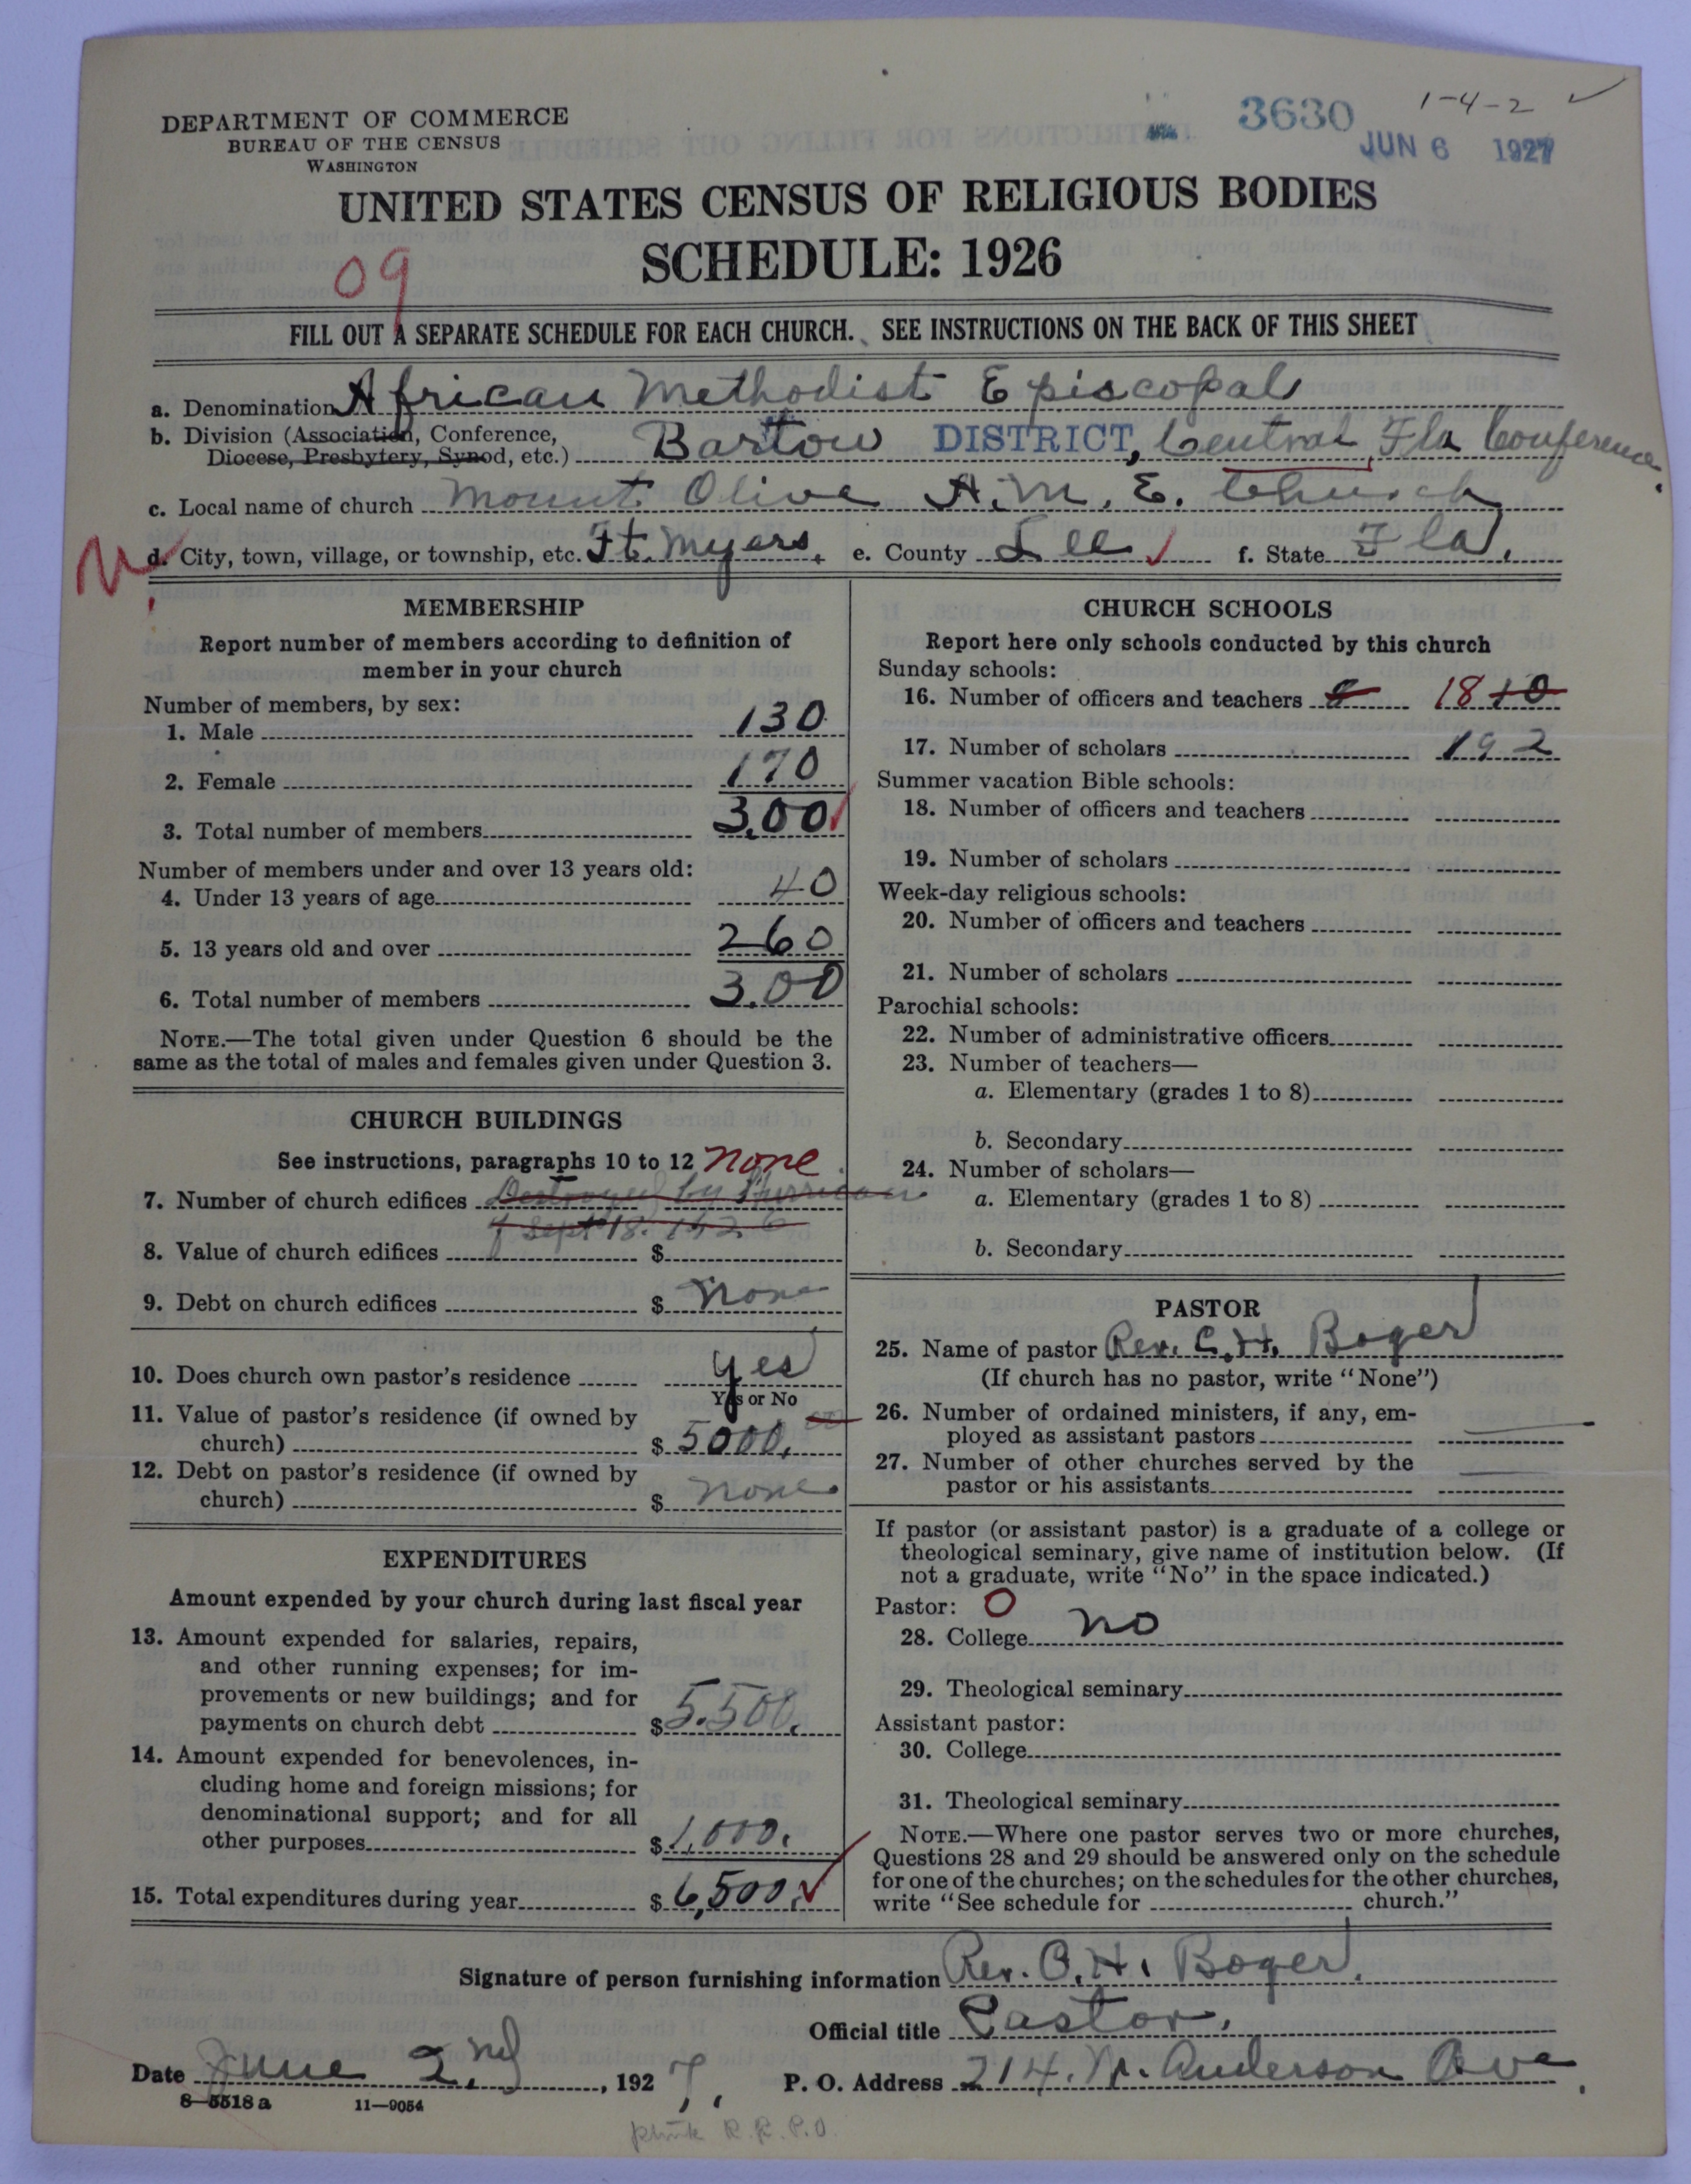 DEPARTMENT OF COMMERCE
BUREAU OF THE CENSUS
WASHINGTON
3630
1-4-2
JUN 6 1927
UNITED STATES CENSUS OF RELIGIOUS BODIES
SCHEDULE: 1926
09
FILL OUT A SEPARATE SCHEDULE FOR EACH CHURCH. SEE INSTRUCTIONS ON THE BACK OF THIS SHEET
a. Denomination African Methodist Episcopal
b. Division (Association, Conference, Diocese, Presbytery, Synod, etc.) Bartow DISTRICT, Central Fla Conference.
c. Local name of church Mount Olive A.M.E. Church
d. City, town, village, or township, etc. Ft. Myers. e. County Lee f. State Fla.
MEMBERSHIP
Report number of members according to definition of
member in your church
Number of members, by sex:
1. Male 130
2. Female 170
3. Total number of members 300
Number of members under and over 13 years old:
4. Under 13 years of age 40
5. 13 years old and over 260
6. Total number of members 300
NOTE.—The total given under Question 6 should be the
same as the total of males and females given under Question 3.
CHURCH BUILDINGS
See instructions, paragraphs 10 to 12 None
7. Number of church edifices Destroyed by Hurrican
of Sept 18. 1926
8. Value of church edifices $
9. Debt on church edifices $ None
10. Does church own pastor's residence Yes
Yes or No
11. Value of pastor's residence (if owned by
church) $ 5000.00
12. Debt on pastor's residence (if owned by
church) $ None
EXPENDITURES
Amount expended by your church during last fiscal year
13. Amount expended for salaries, repairs,
and other running expenses; for im-
provements or new buildings; and for
payments on church debt $ 5.500.
14. Amount expended for benevolences, in-
cluding home and foreign missions; for
denominational support; and for all
other purposes $ 1,000.
15. Total expenditures during year $ 6,500.
CHURCH SCHOOLS
Report here only schools conducted by this church
Sunday schools:
16. Number of officers and teachers 8 18 10
17. Number of scholars 192
Summer vacation Bible schools:
18. Number of officers and teachers
19. Number of scholars
Week-day religious schools:
20. Number of officers and teachers
21. Number of scholars
Parochial schools:
22. Number of administrative officers
23. Number of teachers—
a. Elementary (grades 1 to 8)
b. Secondary
24. Number of scholars—
a. Elementary (grades 1 to 8)
b. Secondary
PASTOR
25. Name of pastor Rev. C. H. Boger
(If church has no pastor, write "None")
26. Number of ordained ministers, if any, em-
ployed as assistant pastors
27. Number of other churches served by the
pastor or his assistants
If pastor (or assistant pastor) is a graduate of a college or
theological seminary, give name of institution below. (If
not a graduate, write "No" in the space indicated.)
Pastor: O
28. College no
29. Theological seminary
Assistant pastor:
30. College
31. Theological seminary
NOTE.—Where one pastor serves two or more churches,
Questions 28 and 29 should be answered only on the schedule
for one of the churches; on the schedules for the other churches,
write "See schedule for church."
Signature of person furnishing information Rev. C. H. Boger.
Official title Pastor.
Date June 2nd, 1927.
P. O. Address 214. N. Anderson Ave.
8-5518 a 11-9054
R.R. P.O.